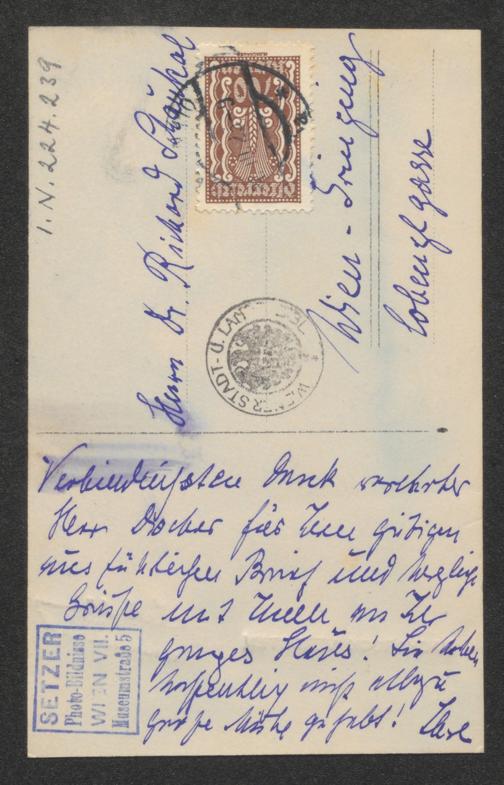 I.N. 224.239
Herrn Dr. Richard Schaukal
Wien - Grinzing
Cobenzlgasse
WIENER STADT- U. LAN
Verbindlichsten Dank verehrter
Herr Doctor für Ihren gütigen
ausführlichen Brief und herzliche
Grüße mit Ihnen an Ihr
ganzes Haus! Sie haben
hoffentlich nicht allzu
große Mühe gehabt! Ihre
SETZER
Photo-Bildnisse
WIEN VII.
Museumstraße 5